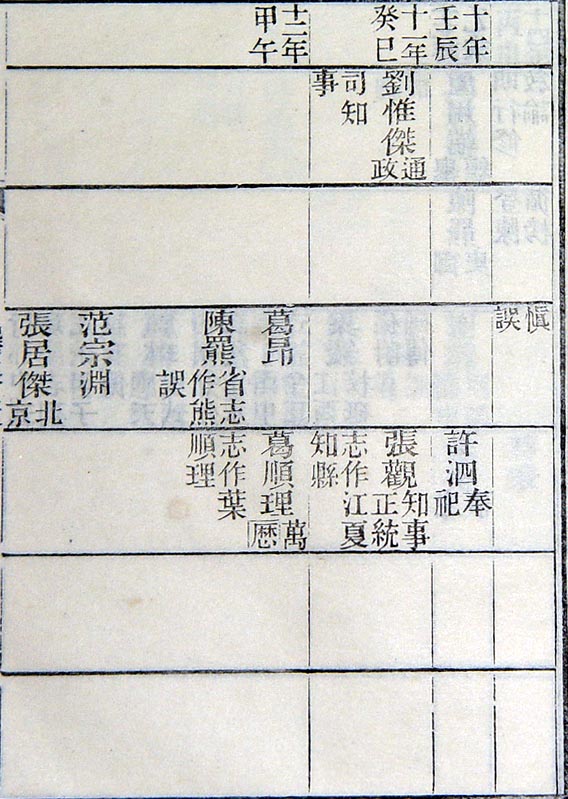 十年
壬辰
十一年
癸巳
十二年
甲午
劉惟傑通政
司知
事
愼
誤
葛昂
陳羆省志
作熊
誤
范宗淵
張居傑北京
許泗奉祀
張觀知事正統
志作江夏
知縣
葛順理萬厯
志作葉
順理